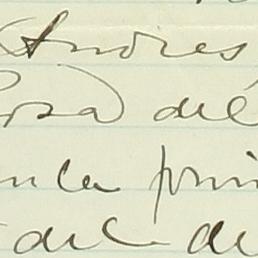 Andres
Rosa del
en la prim
del de